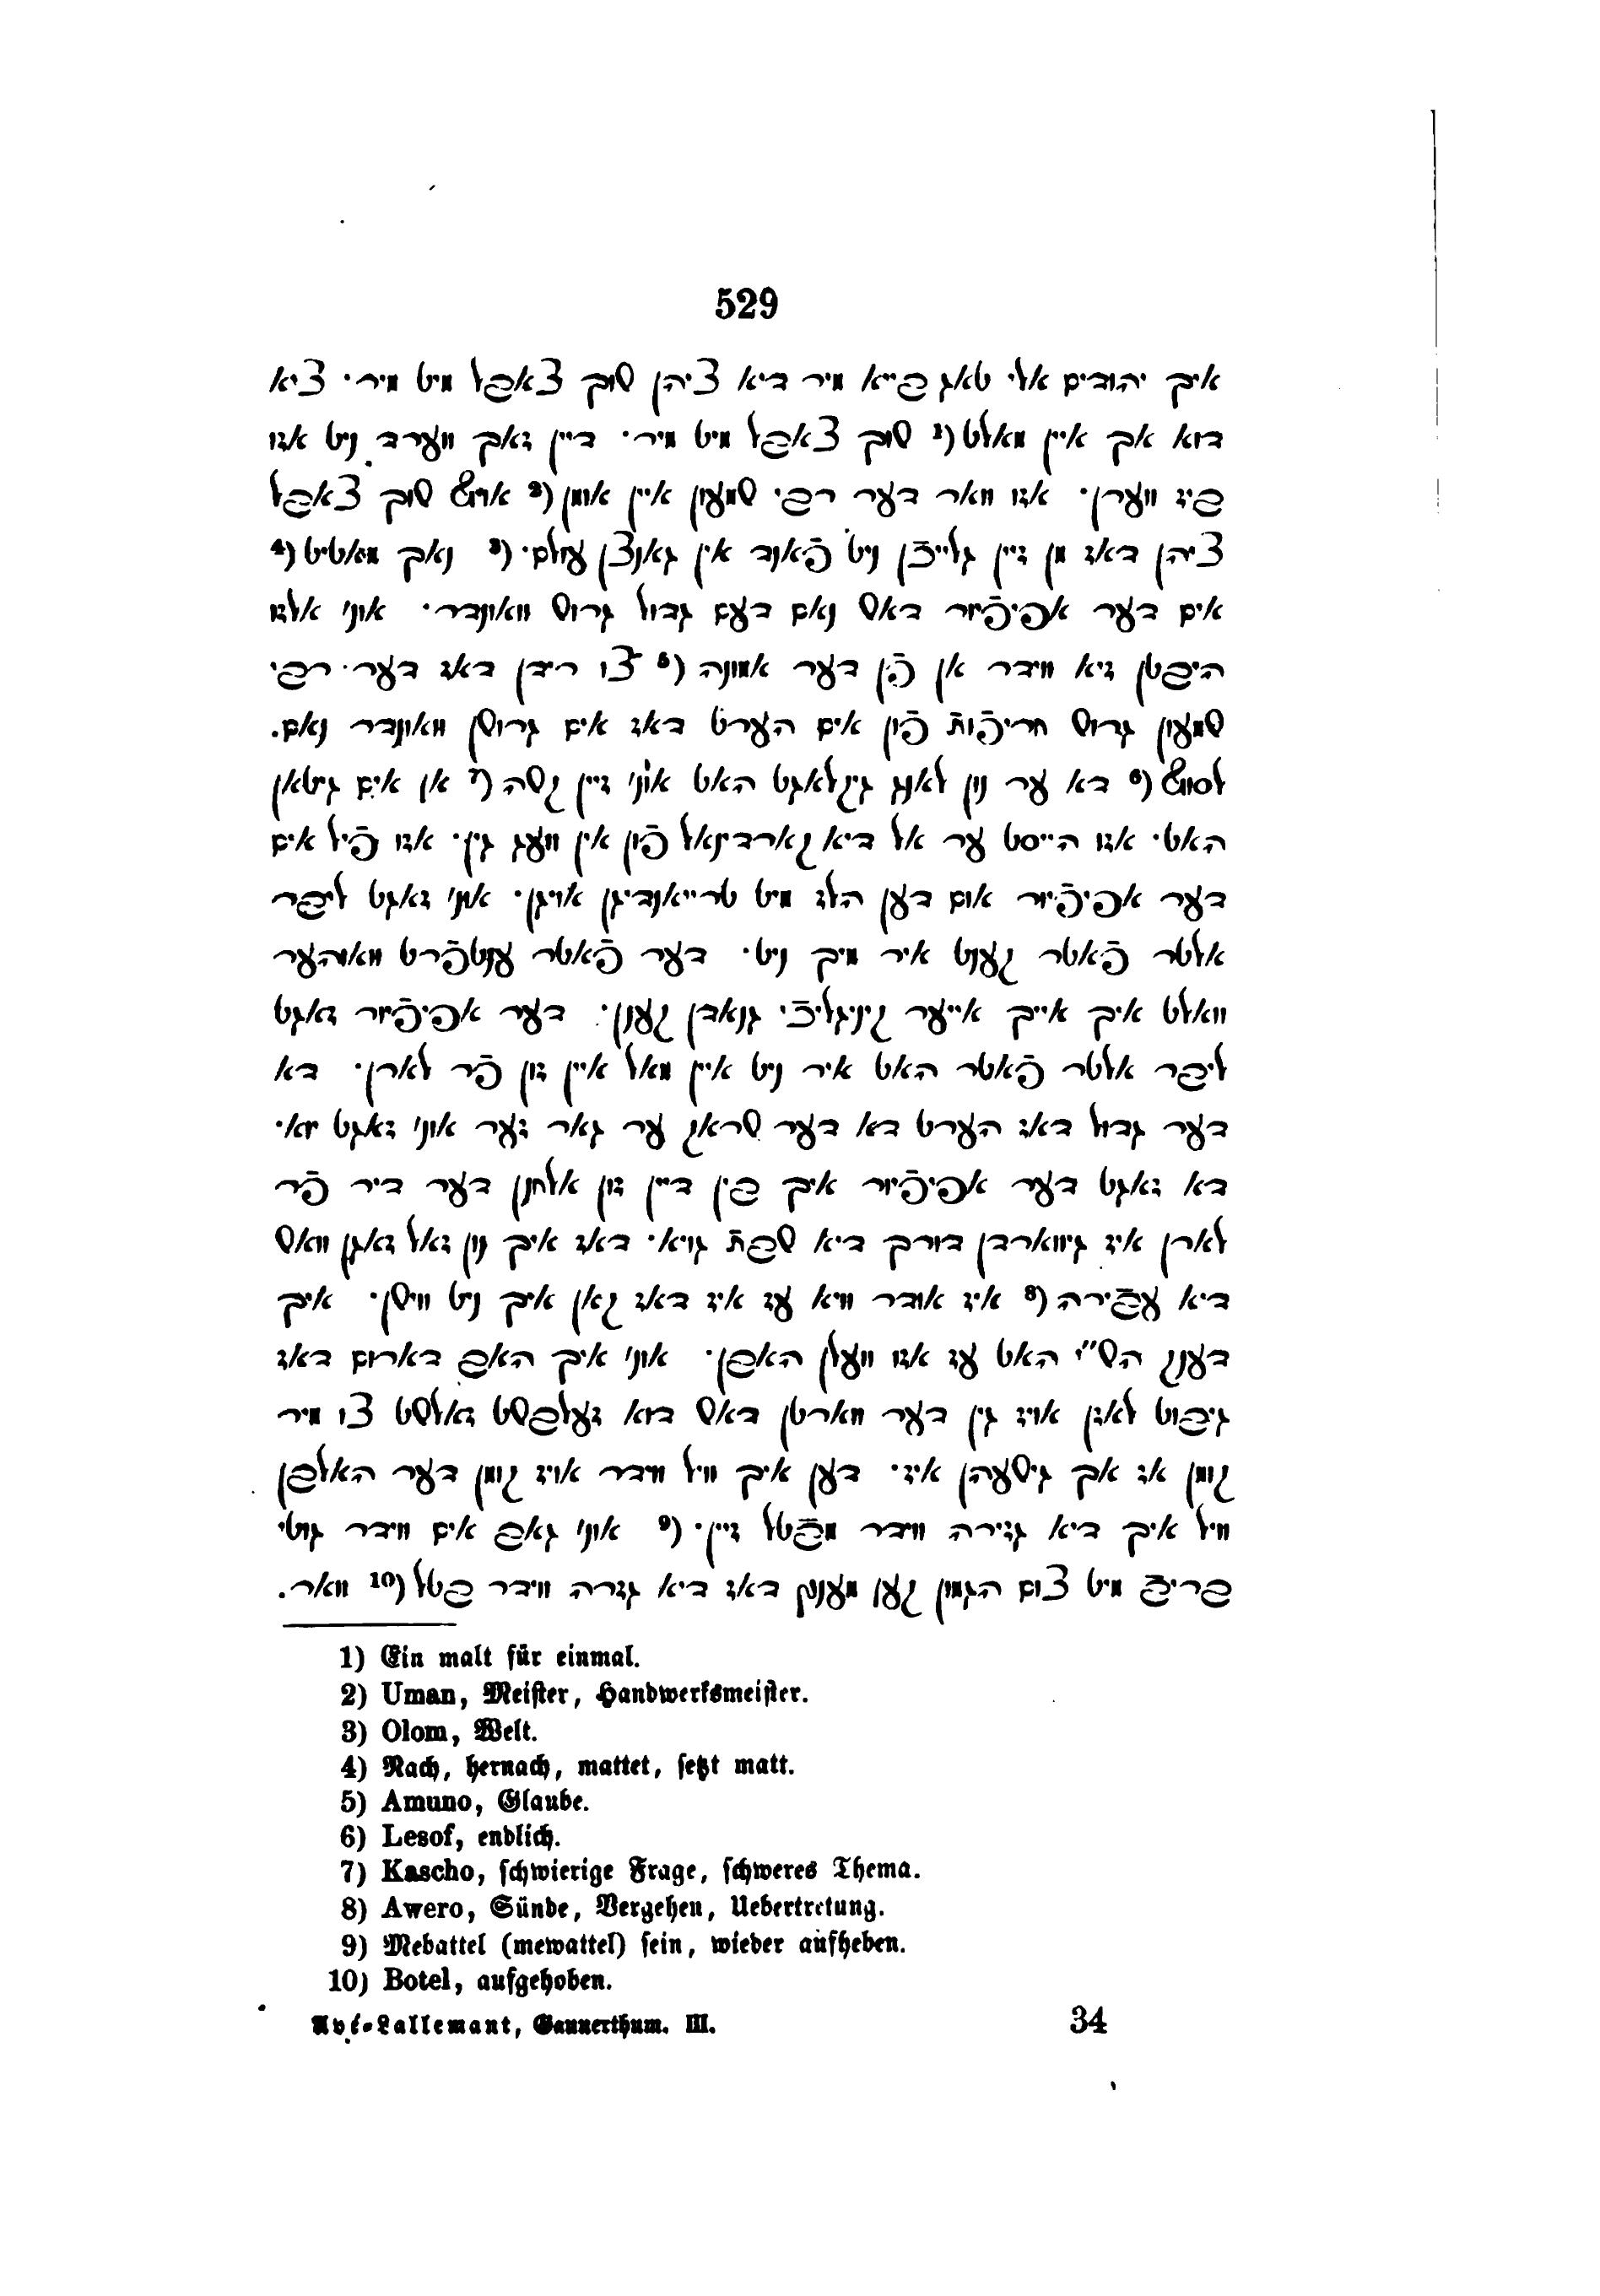 529
איך יהודים אלי טאג פייא מיר דיא ציהן שוך צאפל מיט מיר· ציא
דוא אך איין מאלט (1 שוך צאפל מיט מיר· דיין זאך ווערד ניט אזו
פיז ווערן· אזו וואר דער רפי שמעון איין אומן (2 אויף שוך צאפל
ציהן דאז מן זיין גלייכֿן ניט פֿאנד אין גאנצן עולם· (3 נאך מאטיט (4
אים דער אפיפֿיור דאש נאם דעם גדול גרוש וואונדר· אוני אלזו
היפטן זיא ווידר אן פֿן דער אמונה (5 צו רידן דאז דער רפי
שמעון גרוש חריפֿות פֿון אים הערט דאז אים גרושן וואונדר נאם.
לסוף (6 דא ער נון לאנג גיקלאגט האט אוני זיין קשה (7 אן אים גיטאן
האט· אזו הייסט ער אל דיא קארדינאל פֿון אין וועג גין· אזו פֿיל אים
דער אפיפֿיור אום דען הלז מיט טרייאנדיגן אויגן· אוני זאגט ליפר
אלטר פֿאטר קענט איר מיך ניט· דער פֿאטר ענטפֿרט וואוהער
וואלט איך אייך אייער קיניגליכֿי גנאדן קענן· דער אפיפֿיור זאגט
ליפר אלטר פֿאטר האט איר ניט איין מאל איין זון פֿר לארן· דא
דער גדול דאז הערט דא דער שראק ער גאר זער אוני זאגט יא·
דא זאגט דער אפיפֿיור איך פין דיין זון אלחנן דער דיר פֿר
לארן איז גיווארדן דורך דיא שפת גויא· דאז איך נון זאל זאגן וואש
דיא עפֿירה (8 איז אודר וויא עז איז דאז קאן איך ניט וויסן· איך
דענק הש"י האט עז אזו וועלן האפן· אוני איך האפ דארום דאז
גיפוט לאזן אויז גין דער ווארטן דאש דוא זעלפשט זאלשט צו מיר
קומן אז אך גישעהן איז· דען איך וויל ווידר אויז קומן דער האלפן
וויל איך דיא גזירה ווידר מפֿטל זיין· (9 אוני גאפ אים ווידר גוטי
פריפֿ מיט צום הגמון קען מענץ דאז דיא גזרה ווידר פטל (10 וואר.
1) Ein malt für einmal.
2) Uman, Meister, Handwerksmeister.
3) Olom, Welt.
4) Nach, hernach, mattet, setzt matt.
5) Amuno, Glaube.
6) Lesof, endlich.
7) Kascho, schwierige Frage, schweres Thema.
8) Awero, Sünde, Vergehen, Uebertretung.
9) Mebattel (mewattel) sein, wieder aufheben.
10) Botel, aufgehoben.
Avé-Lallemant, Gaunerthum. III. 34